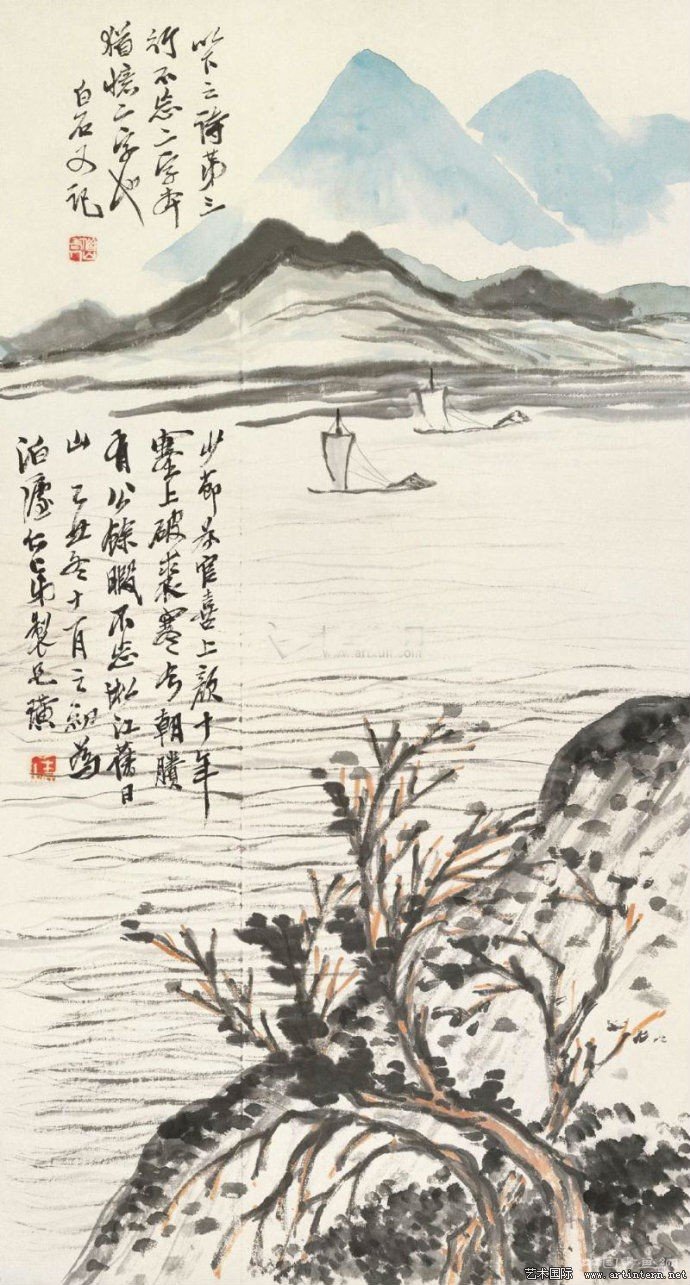 以下之詩第三
行不忘二字本
猶憶二字也
白石又記
少為官喜上顏十年
塞上破裘寒今朝賸
有公餘暇不忘淞江舊日
山乙丑冬十一月之初為
泊廬仁弟製兄璜
艺术国际 www.artintern.net